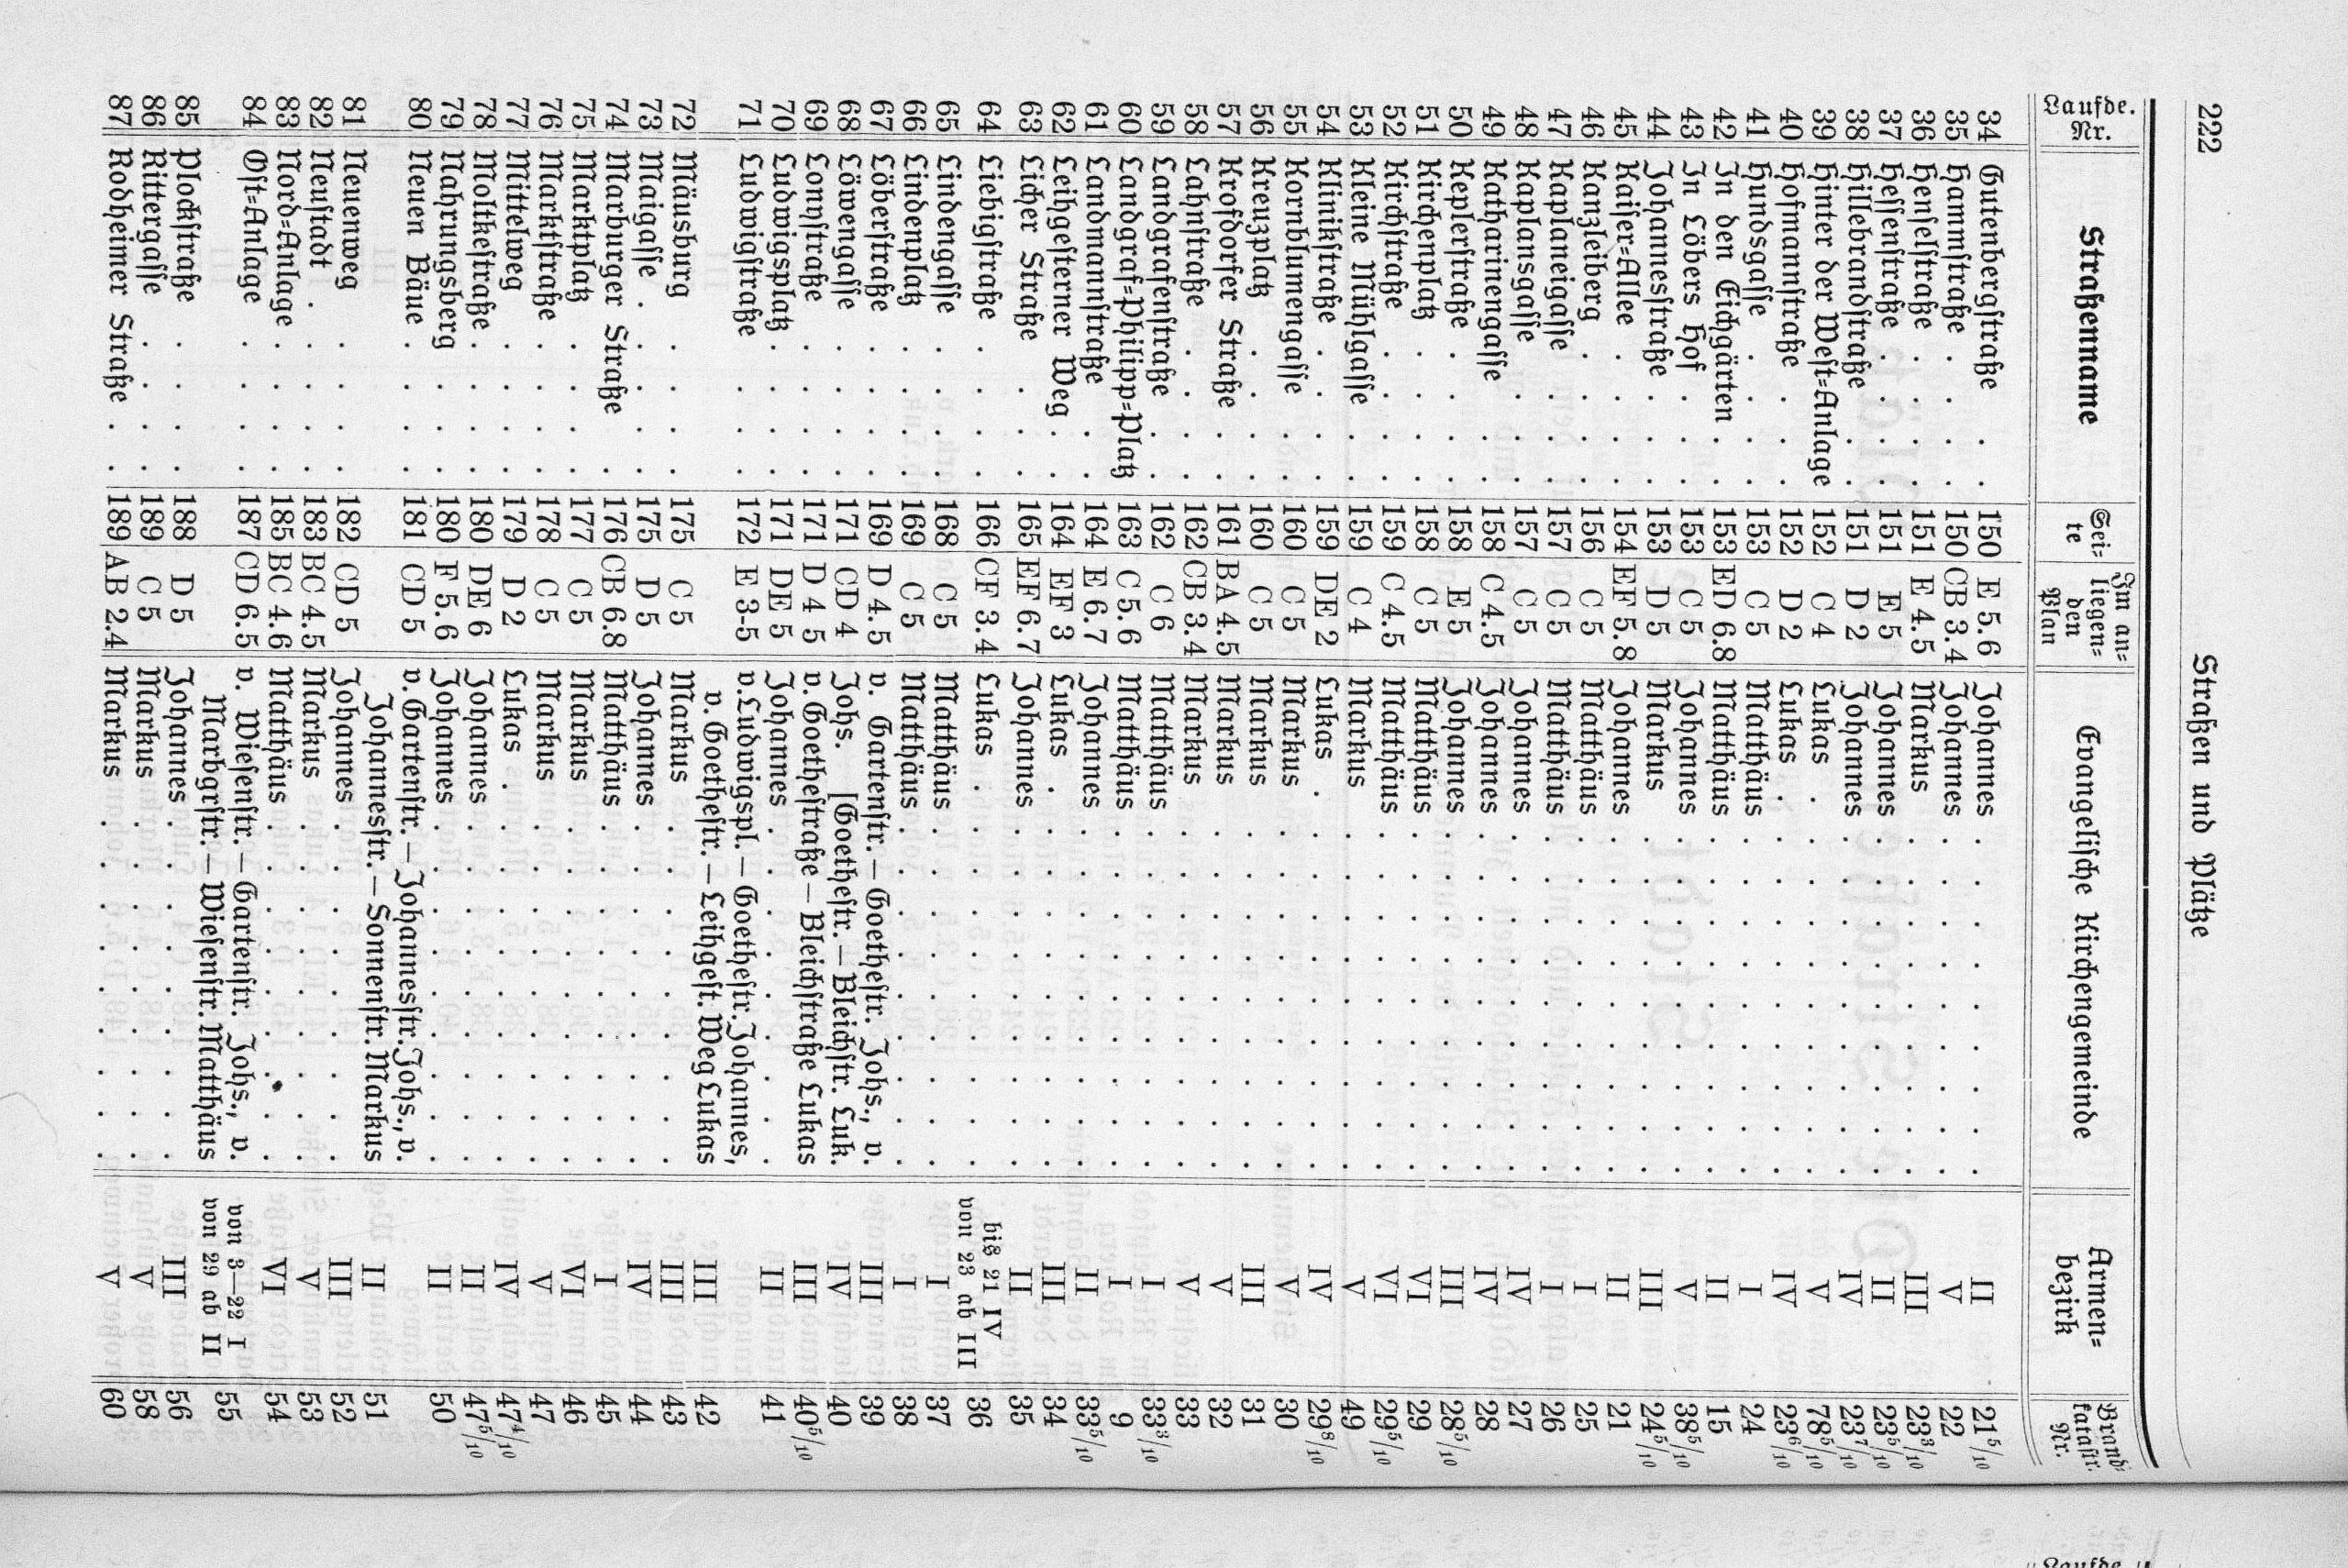 222 Straßen und Plätze
Laufde. Nr. Straßenname Sei- te Im an- liegen- den Plan Evangelische Kirchengemeinde Armen- bezirk Brand- katastr. Nr.
34 Gutenbergstraße . . 150 E 5.6 Johannes . . . . . . . . . II 21 5/10
35 Hammstraße . . . . 150 CB 3.4 Johannes . . . . . . . . . V 22
36 Henselstraße . . . . 151 E 4.5 Markus . . . . . . . . . III 23 3/10
37 Hessenstraße . . . . 151 E 5 Johannes . . . . . . . . . II 23 5/10
38 Hillebrandstraße . . 151 D 2 Johannes . . . . . . . . . IV 23 7/10
39 Hinter der West-Anlage 152 C 4 Lukas . . . . . . . . . . V 78 5/10
40 Hofmannstraße . . . 152 D 2 Lukas . . . . . . . . . . IV 23 6/10
41 Hundsgasse . . . . 153 C 5 Matthäus . . . . . . . . . I 24
42 In den Eichgärten . . 153 ED 6.8 Matthäus . . . . . . . . . II 15
43 In Löbers Hof . . . 153 C 5 Johannes . . . . . . . . . V 38 5/10
44 Johannesstraße . . . 153 D 5 Markus . . . . . . . . . III 24 5/10
45 Kaiser-Allee . . . . 154 EF 5.8 Johannes . . . . . . . . . II 21
46 Kanzleiberg . . . . 156 C 5 Matthäus . . . . . . . . . I 25
47 Kaplaneigasse . . . 157 C 5 Matthäus . . . . . . . . . I 26
48 Kaplansgasse . . . 157 C 5 Johannes . . . . . . . . . IV 27
49 Katharinengasse . . 158 C 4.5 Johannes . . . . . . . . . IV 28
50 Keplerstraße . . . . 158 E 5 Johannes . . . . . . . . . III 28 5/10
51 Kirchenplatz . . . . 158 C 5 Matthäus . . . . . . . . . VI 29
52 Kirchstraße . . . . 159 C 4.5 Matthäus . . . . . . . . . VI 29 5/10
53 Kleine Mühlgasse . . 159 C 4 Markus . . . . . . . . . V 49
54 Klinikstraße . . . . 159 DE 2 Lukas . . . . . . . . . . IV 29 8/10
55 Kornblumengasse . . 160 C 5 Markus . . . . . . . . . V 30
56 Kreuzplatz . . . . 160 C 5 Markus . . . . . . . . . III 31
57 Krofdorfer Straße . . 161 BA 4.5 Markus . . . . . . . . . V 32
58 Lahnstraße . . . . 162 CB 3.4 Markus . . . . . . . . . V 33
59 Landgrafenstraße . . 162 C 6 Matthäus . . . . . . . . . I 33 3/10
60 Landgraf-Philipp-Platz 163 C 5.6 Matthäus . . . . . . . . . I 9
61 Landmannstraße . . 164 E 6.7 Johannes . . . . . . . . . II 33 5/10
62 Leihgesterner Weg . . 164 EF 3 Lukas . . . . . . . . . . III 34
63 Licher Straße . . . 165 EF 6.7 Johannes . . . . . . . . . II 35
64 Liebigstraße . . . . 166 CF 3.4 Lukas . . . . . . . . . . bis 21 IV
von 23 ab III 36
65 Lindengasse . . . . 168 C 5 Matthäus . . . . . . . . . I 37
66 Lindenplatz . . . . 169 C 5 Matthäus . . . . . . . . . I 38
67 Löberstraße . . . . 169 D 4.5 v. Gartenstr.—Goethestr. Johs., v. III 39
68 Löwengasse . . . . 171 CD 4 Johs. [Goethestr.—Bleichstr. Luk. IV 40
69 Lonystraße . . . . 171 D 4 5 v. Goethestraße—Bleichstraße Lukas III 40 5/10
70 Ludwigsplatz . . . . 171 DE 5 Johannes . . . . . . . . . II 41
71 Ludwigstraße . . . . 172 E 3-5 v. Ludwigspl.—Goethestr. Johannes,
v. Goethestr.—Leihgest. Weg Lukas III 42
72 Mäusburg . . . . 175 C 5 Markus . . . . . . . . . III 43
73 Maigasse . . . . . 175 D 5 Johannes . . . . . . . . . IV 44
74 Marburger Straße . . 176 CB 6.8 Matthäus . . . . . . . . . I 45
75 Marktplatz . . . . 177 C 5 Markus . . . . . . . . . VI 46
76 Marktstraße . . . . 178 C 5 Markus . . . . . . . . . V 47
77 Mittelweg . . . . 179 D 2 Lukas . . . . . . . . . . IV 47 4/10
78 Moltkestraße . . . . 180 DE 6 Johannes . . . . . . . . . II 47 5/10
79 Nahrungsberg . . . 180 F 5.6 Johannes . . . . . . . . . II 50
80 Neuen Bäue . . . . 181 CD 5 v. Gartenstr.—Johannesstr. Johs., v.
Johannesstr.—Sonnenstr. Markus II 51
81 Neuenweg . . . . 182 CD 5 Johannes . . . . . . . . . III 52
82 Neustadt . . . . . 183 BC 4.5 Markus . . . . . . . . . V 53
83 Nord-Anlage . . . . 185 BC 4.6 Matthäus . . . . . . . . . VI 54
84 Ost-Anlage . . . . 187 CD 6.5 v. Wiesenstr.—Gartenstr. Johs., v. von 3—22 I
Marbgrstr.—Wiesenstr. Matthäus von 29 ab II 55
85 Plockstraße . . . . 188 D 5 Johannes . . . . . . . . . III 56
86 Rittergasse . . . . 189 C 5 Markus . . . . . . . . . V 58
87 Rodheimer Straße . . 189 AB 2.4 Markus . . . . . . . . . V 60
Laufde.